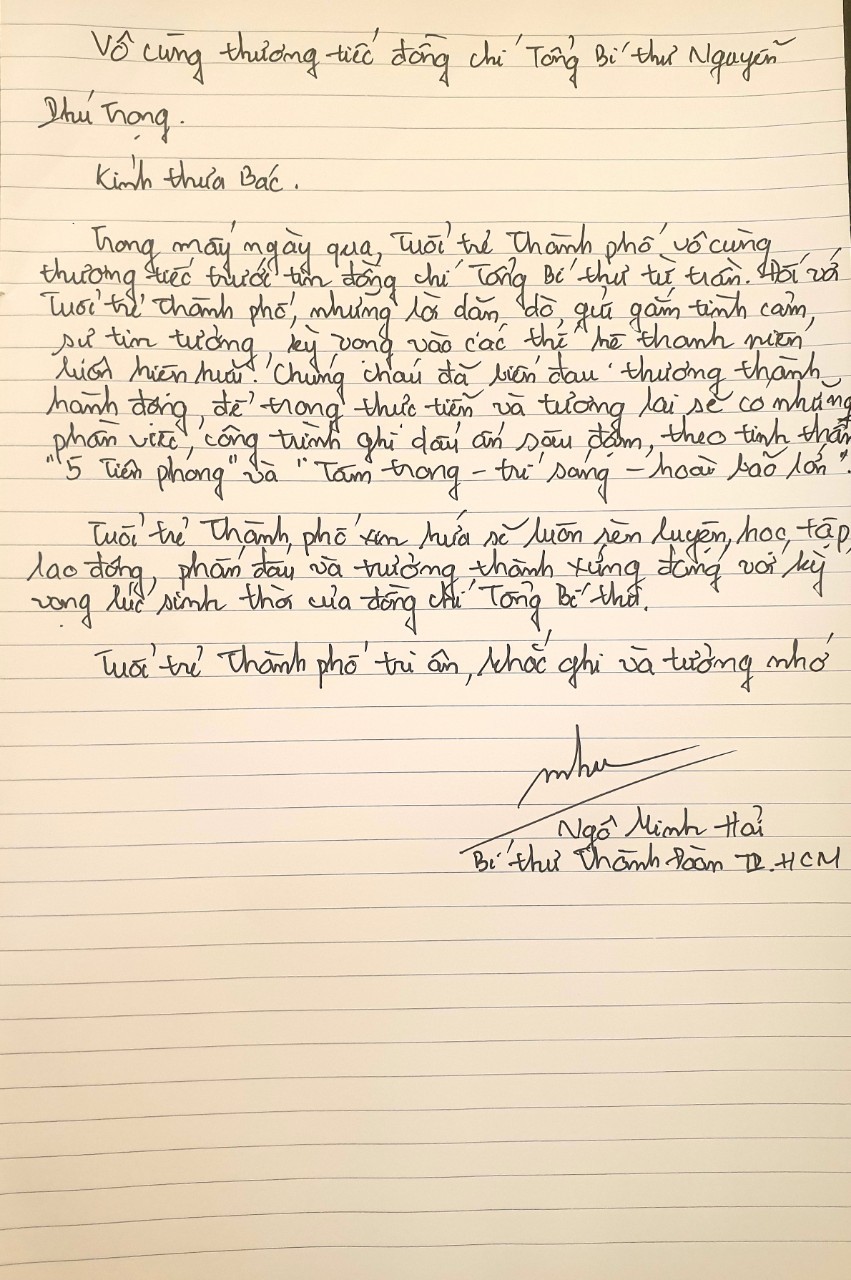 Vô cùng thương tiếc đồng chí Tổng Bí thư Nguyễn
Phú Trọng.
Kính thưa Bác.
Trong mấy ngày qua, Tuổi trẻ Thành phố vô cùng
thương tiếc trước tin đồng chí Tổng Bí thư từ trần. Đối với
Tuổi trẻ Thành phố, những lời dặn dò, gửi gắm tình cảm,
sự tin tưởng, kỳ vọng vào các thế hệ thanh niên
luôn hiện hữu. Chúng cháu đã biến đau thương thành
hành động, để trong thực tiễn và tương lai sẽ có những
phần việc, công trình ghi dấu ấn sâu đậm, theo tinh thần
"5 Tiên phong" và "Tâm trong - trí sáng - hoài bão lớn".
Tuổi trẻ Thành phố xin hứa sẽ luôn rèn luyện, học tập,
lao động, phấn đấu và trưởng thành xứng đáng với kỳ
vọng lúc sinh thời của đồng chí Tổng Bí thư.
Tuổi trẻ Thành phố tri ân, khắc ghi và tưởng nhớ
Ngô Minh Hải
Bí thư Thành Đoàn TP.HCM